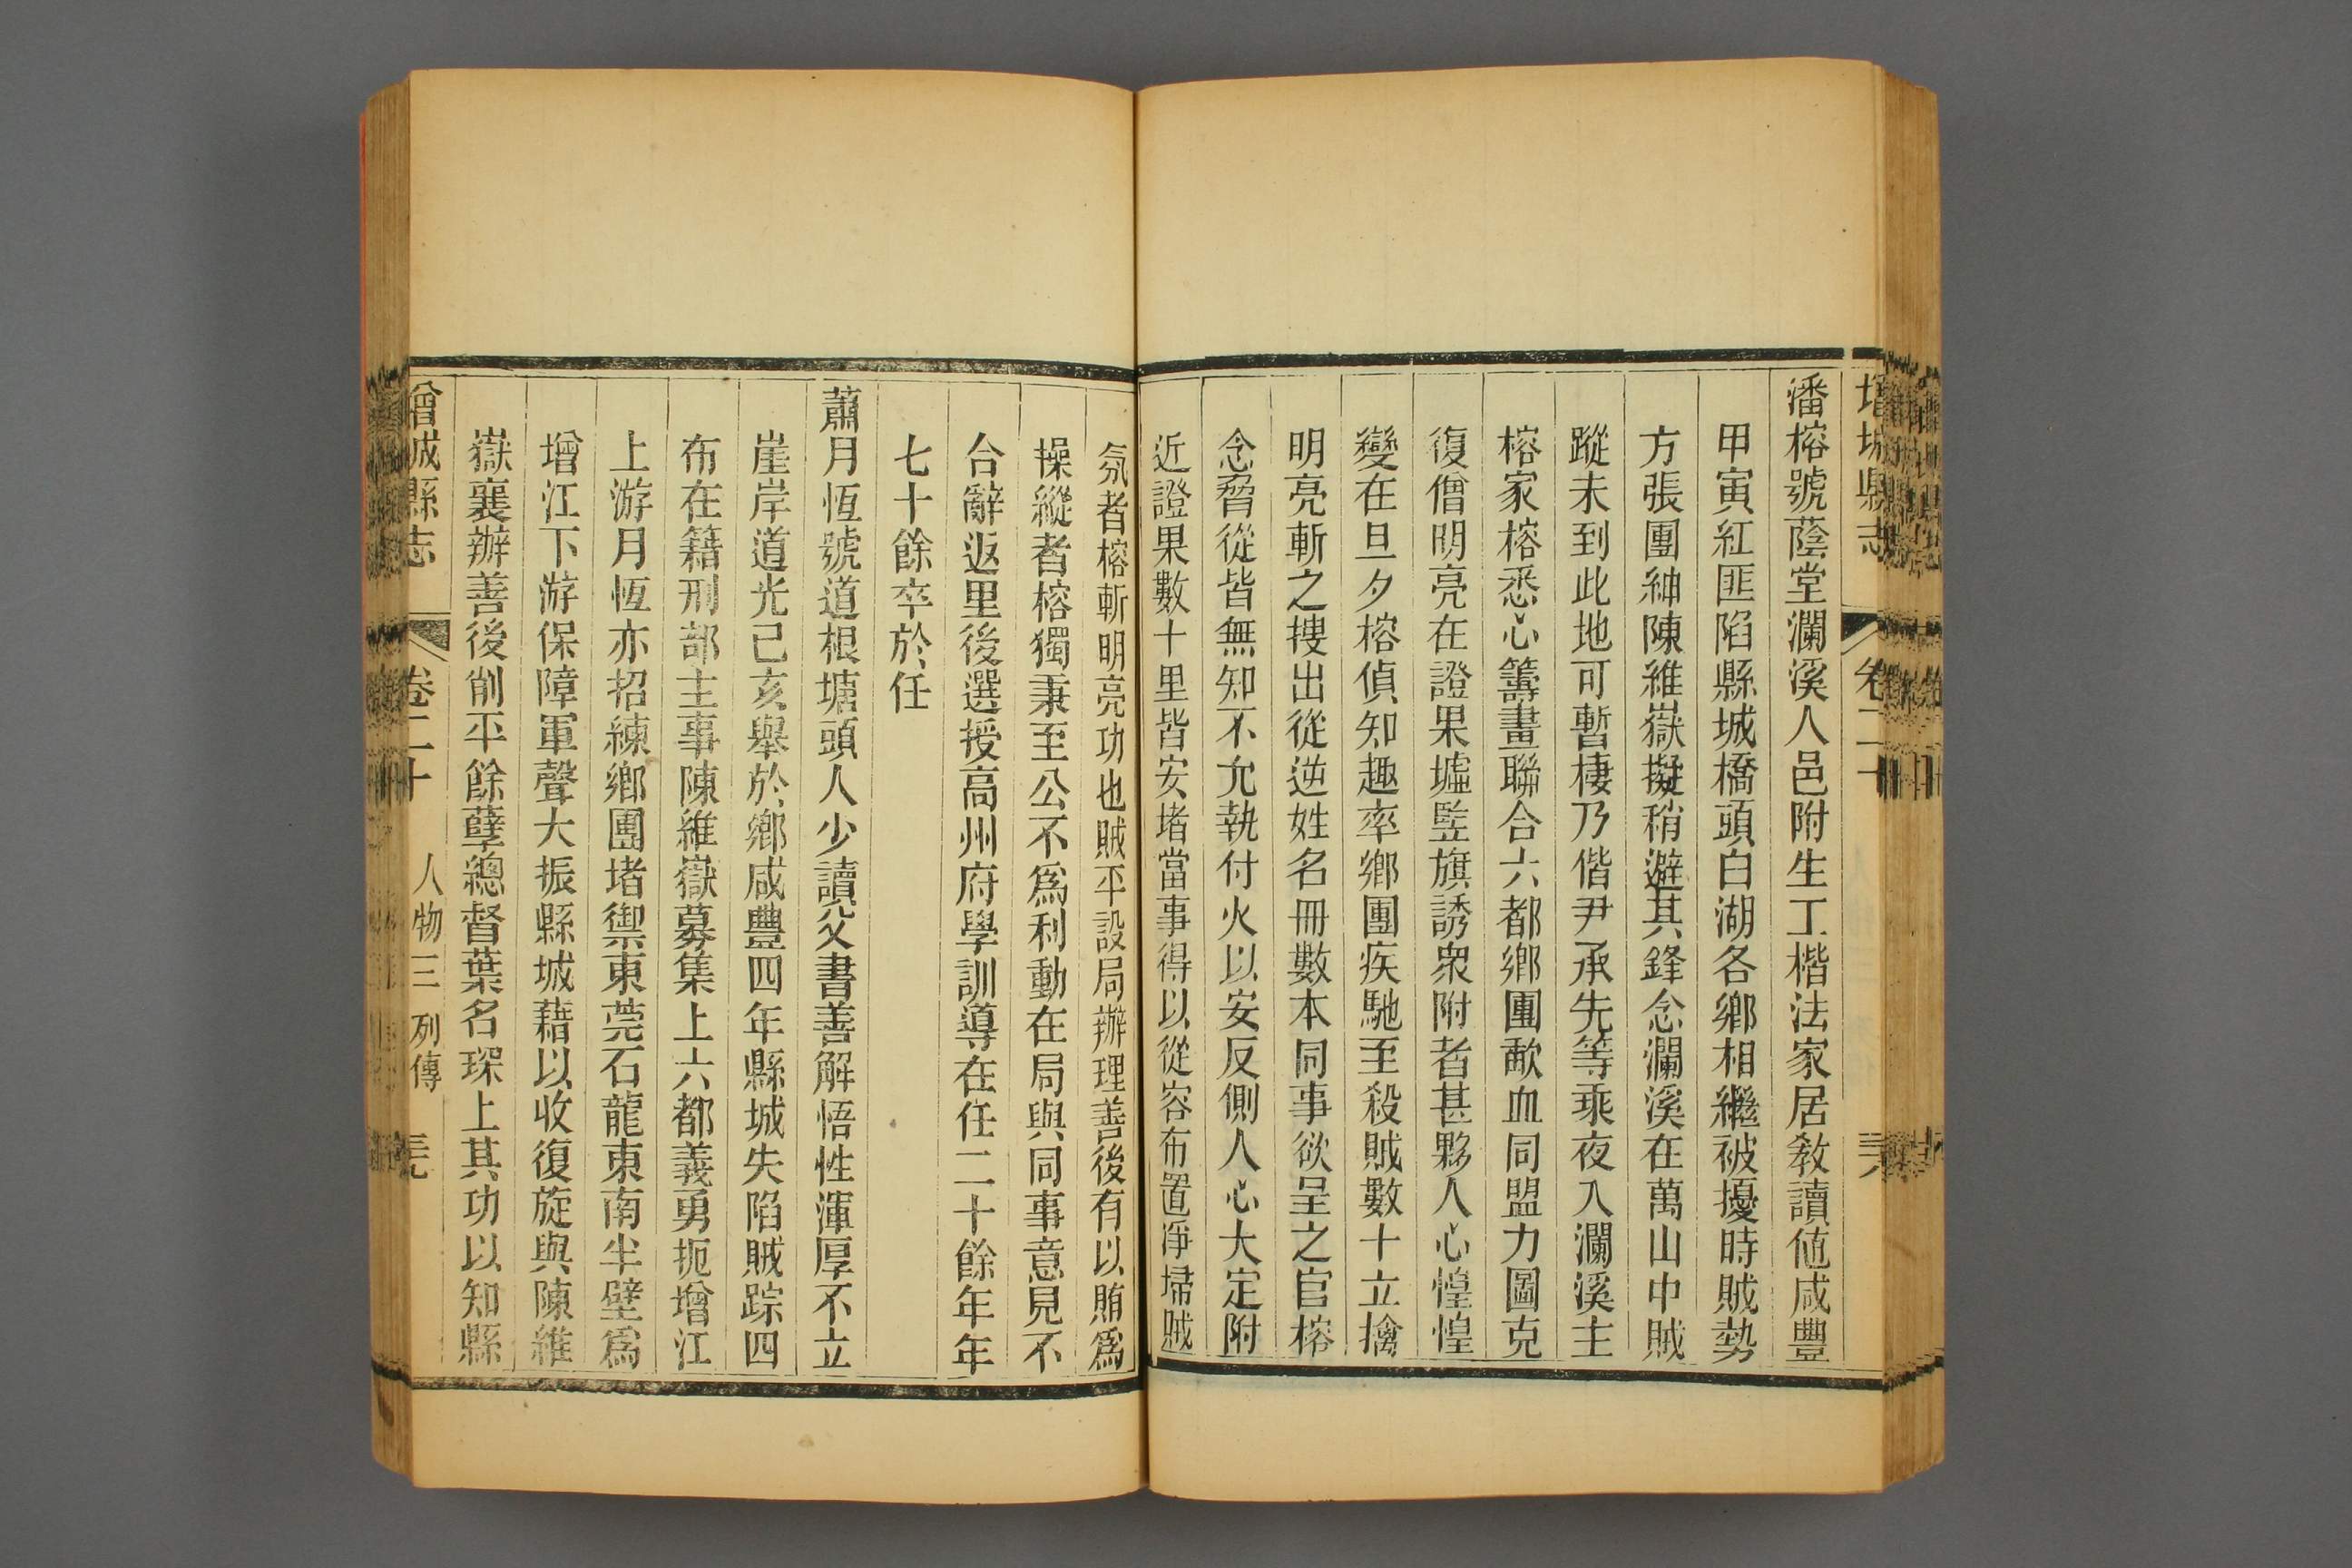 增城縣志 卷二十 三八
潘榕號蔭堂瀾溪人邑附生工楷法家居敎讀値咸豐
甲寅紅匪陷縣城橋頭白湖各鄉相繼被擾時賊勢
方張團紳陳維嶽擬稍避其鋒念瀾溪在萬山中賊
蹤未到此地可暫棲乃偕尹承先等乘夜入瀾溪主
榕家榕悉心籌畫聯合六都鄉團歃血同盟力圖克
復僧明亮在證果墟豎旗誘衆附者甚夥人心惶惶
變在旦夕榕偵知趣率鄉團疾馳至殺賊數十立擒
明亮斬之搜出從逆姓名冊數本同事欲呈之官榕
念脅從皆無知不允執付火以安反側人心大定附
近證果數十里皆安堵當事得以從容布置淨埽賊
氛者榕斬明亮功也賊平設局辦理善後有以賄爲
操縱者榕獨秉至公不爲利動在局與同事意見不
合辭返里後選授高州府學訓導在任二十餘年年
七十餘卒於任
蕭月恆號道根塘頭人少讀父書善解悟性渾厚不立
崖岸道光己亥舉於鄉咸豐四年縣城失陷賊踪四
布在籍刑部主事陳維嶽募集上六都義勇扼增江
上游月恆亦招練鄉團堵禦東莞石龍東南半壁爲
增江下游保障軍聲大振縣城藉以收復旋與陳維
嶽襄辦善後削平餘孽總督葉名琛上其功以知縣
增城縣志 卷二十 人物三 列傳 三九